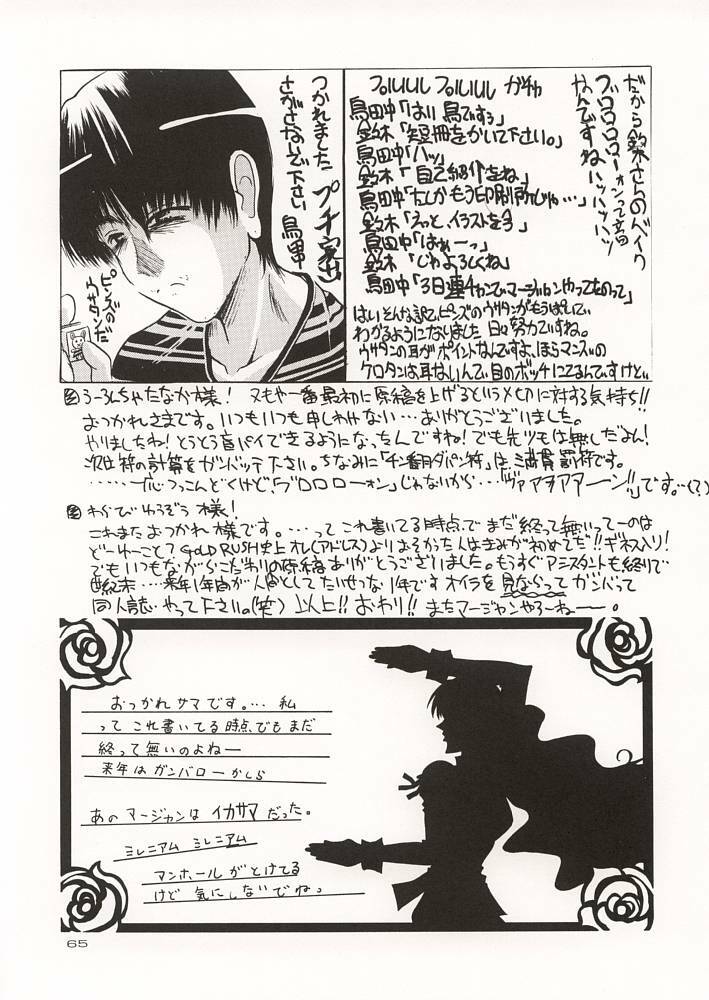 だから鈴木さんのバイク
ブロロロローォンって
なんですねハッハッハッ
プルルルル プルルルル ガチャ
鳥田中「はい鳥ですぅ」
鈴木「短冊をかいて下さい。」
鳥田中「ハッ」
鈴木「自己紹介をね」
鳥田中「たしかもう印刷所じゃ…」
鈴木「えっと、イラストを今」
鳥田中「はぁーっ」
鈴木「じゃよろしくね」
鳥田中「3日連チャンでマージャンやってものって」
はいそんな訳でピンズの
わかるようになりました 日々努力ですね。
ウサタンの耳がポイントなんですよ、ほらマンズの
ケロタンは耳ないんで、目のポッチにてるんですけどぃ
つかれました プチ家出
さがさないで下さい 鳥田中
ピンズの
ウサタンだ
うーろんちゃたなか様! マもや一番最初に原稿を上げるというメ切に対する気持ち!!
おつかれさまです。いつもいつも申しわけない…ありがとうございました。
やりましたわ!とうとう盲パイできるようになったんですね!でも先ヅモは無しだよん!
次は符の計算をガンバッテ下さい。ちなみに「チン番月ダパン符」は満貫罰符です。
わかびゆうぞう様!
これまたおつかれ様です。…って これ書いてる時点で まだ終って無いってーのは
どーゆーこと? GOLD RUSH史上オレ(アドレス)よりおそかった人はきみが初めてだ!!ギネス入り!
でもいつもながらこだわりの原稿ありがとうございました。もうすぐアシスタントも終りで
世紀末…来年1年間が人間としてたいせつな1年です オイラを見ならってガンバって
同人誌やって下さい。(笑) 以上!! おわり!! またマージャンやろーねー。
おつかれサマです。…私
って これ書いてる時点でもまだ
終って無いのよねー
来年はガンバローかしら
あのマージャンはイカサマだった。
ミレニアム ミレニアム
マンホールがとけてる
けど 気にしないでねっ
65